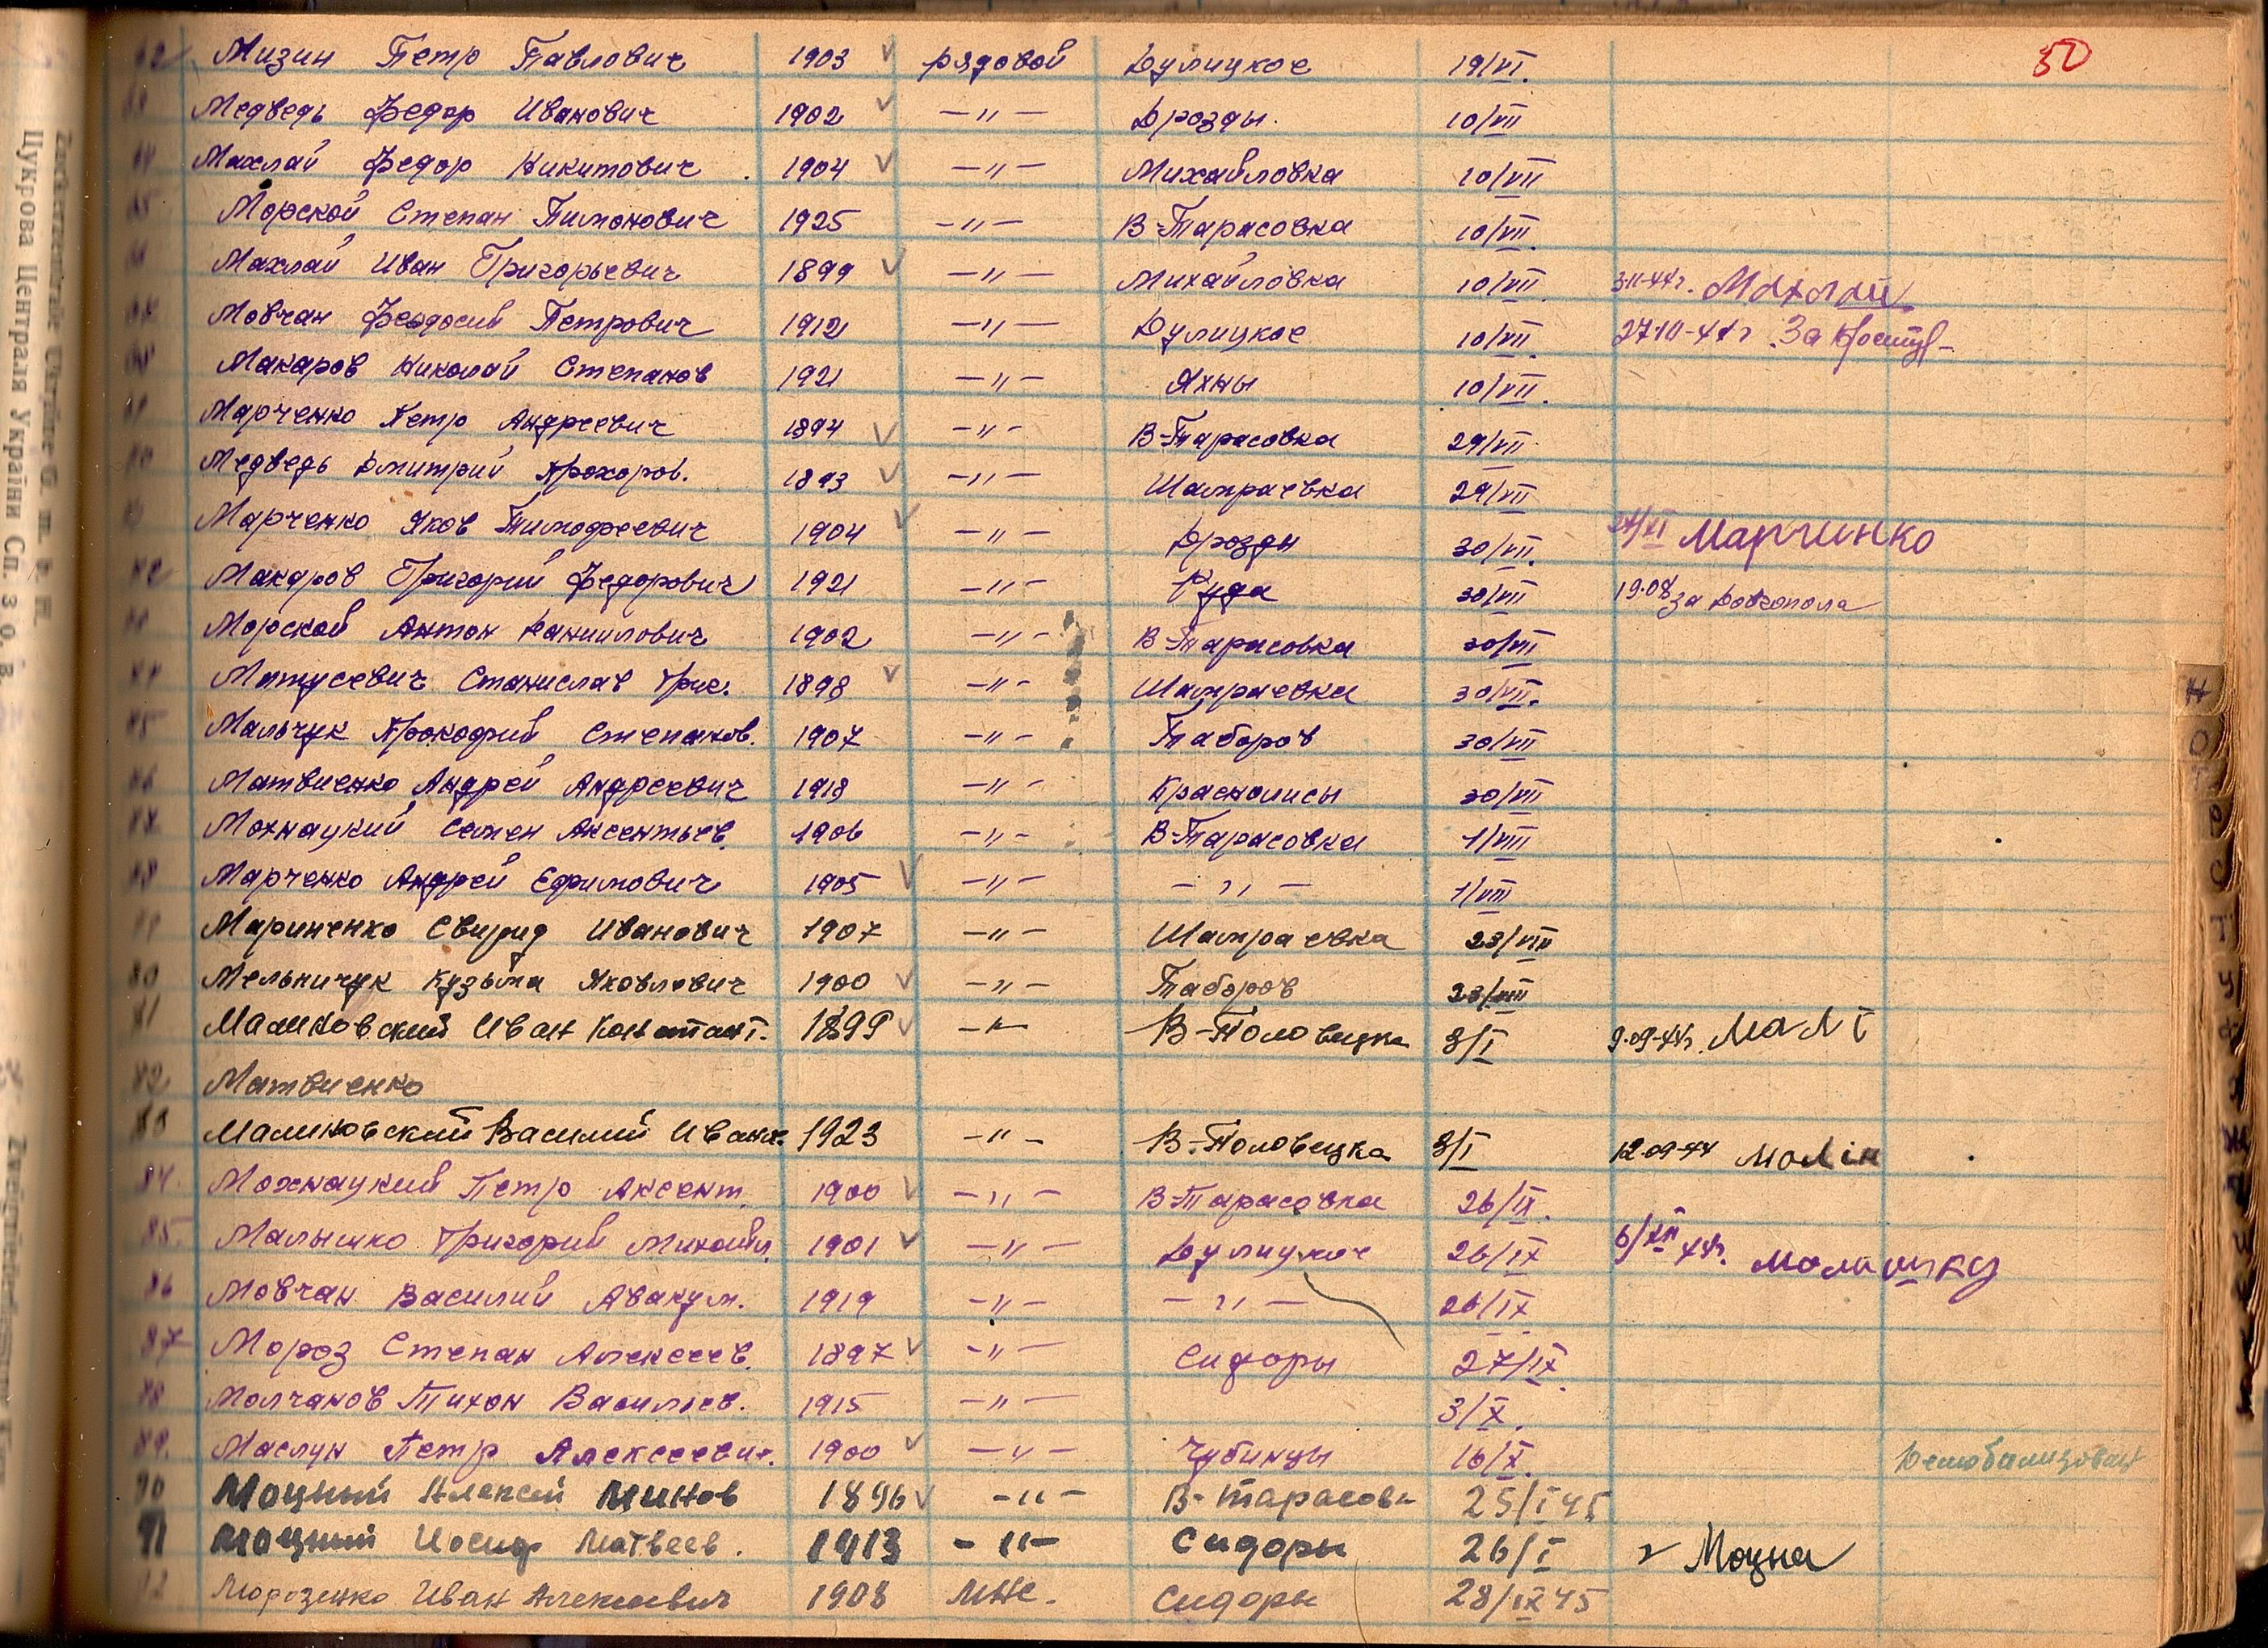 50
62 Мизин Петр Павлович 1903 рядовой Дулицкое 19/VI.
Медведь Федор Иванович 1902 —〃— Дрозды. 10/VII
Махлай Федор Никитович 1904 —〃— Михайловка 10/VII
65 Морской Степан Тимонович 1925 —〃— В-Тарасовка 10/VII
Махлай Иван Григорьевич 1899 —〃— Михайловка 10/VII. Махлай
Мовчан Феодосий Петрович 1912 —〃— Дулицкое 10/VII. За
Макаров Николай Степанов 1921 —〃— Яхны 10/VII.
Марченко Петр Андреевич 1894 —〃— В-Тарасовка 29/VII
Медведь Дмитрий Прохоров. 1893 —〃— Шамраевка 29/VII
Марченко Яков Тимофеевич 1904 —〃— Дрозды 30/VII. Марчинко
Макаров Григорий Федорович 1921 —〃— Руда 30/VII 19.08 за
Морской Антон Даниилович 1902 —〃— В-Тарасовка 30/VII
Матусевич Станислав Григ. 1898 —〃— Шамраевка 30/VII.
75 Мальчук Прокофий Степанов. 1907 —〃— Таборов 30/VII
76 Матвиенко Андрей Андреевич 1918 —〃— Краснолисы 30/VII
77 Мохнацкий Семен Аксентьев. 1906 —〃— В-Тарасовка 1/VIII
78 Марченко Андрей Ефимович 1905 —〃— —〃— 1/VIII
79 Мариненко Свирид Иванович 1907 —〃— Шамраевка 23/VIII
80 Мельничук Кузьма Яковлевич 1900 —〃— Таборов 23/VIII
81 Малиновский Иван Констант. 1899 —〃— В-Половецка 8/I 9.09-44г. Мал
82 Матвиенко
83 Малиновский Василий Иван. 1923 —〃— В.-Половецка 8/I 12.09-44 Малін
84. Мохнацкий Петр Аксент. 1900 —〃— В-Тарасовка 26/IX.
85. Малышко Григорий Михайл. 1901 —〃— Дулицкое 26/IX 6/XII 44г.
86 Мовчан Василий Авакум. 1919 —〃— —〃— 26/IX
87 Мороз Степан Алексеев. 1897 —〃— Сидоры 27/IX.
88 Молчанов Тихон Васильев. 1915 —〃— 3/X.
89. Маслун Петр Алексеевич. 1900 —〃— Чубинцы 16/X. Демобилизован
90 Моцный Алексей Минов 1896 —〃— В-Тарасовк 25/I 45
91 Моцный Иосиф Матвеев. 1913 —〃— Сидоры 26/I Моцна
92 Морозенко Иван Алексеевич 1908 Сидоры 28/IX 45
Цукрова Централя України Сп. з о. в.
Н
О
П
Р
С
Т
У